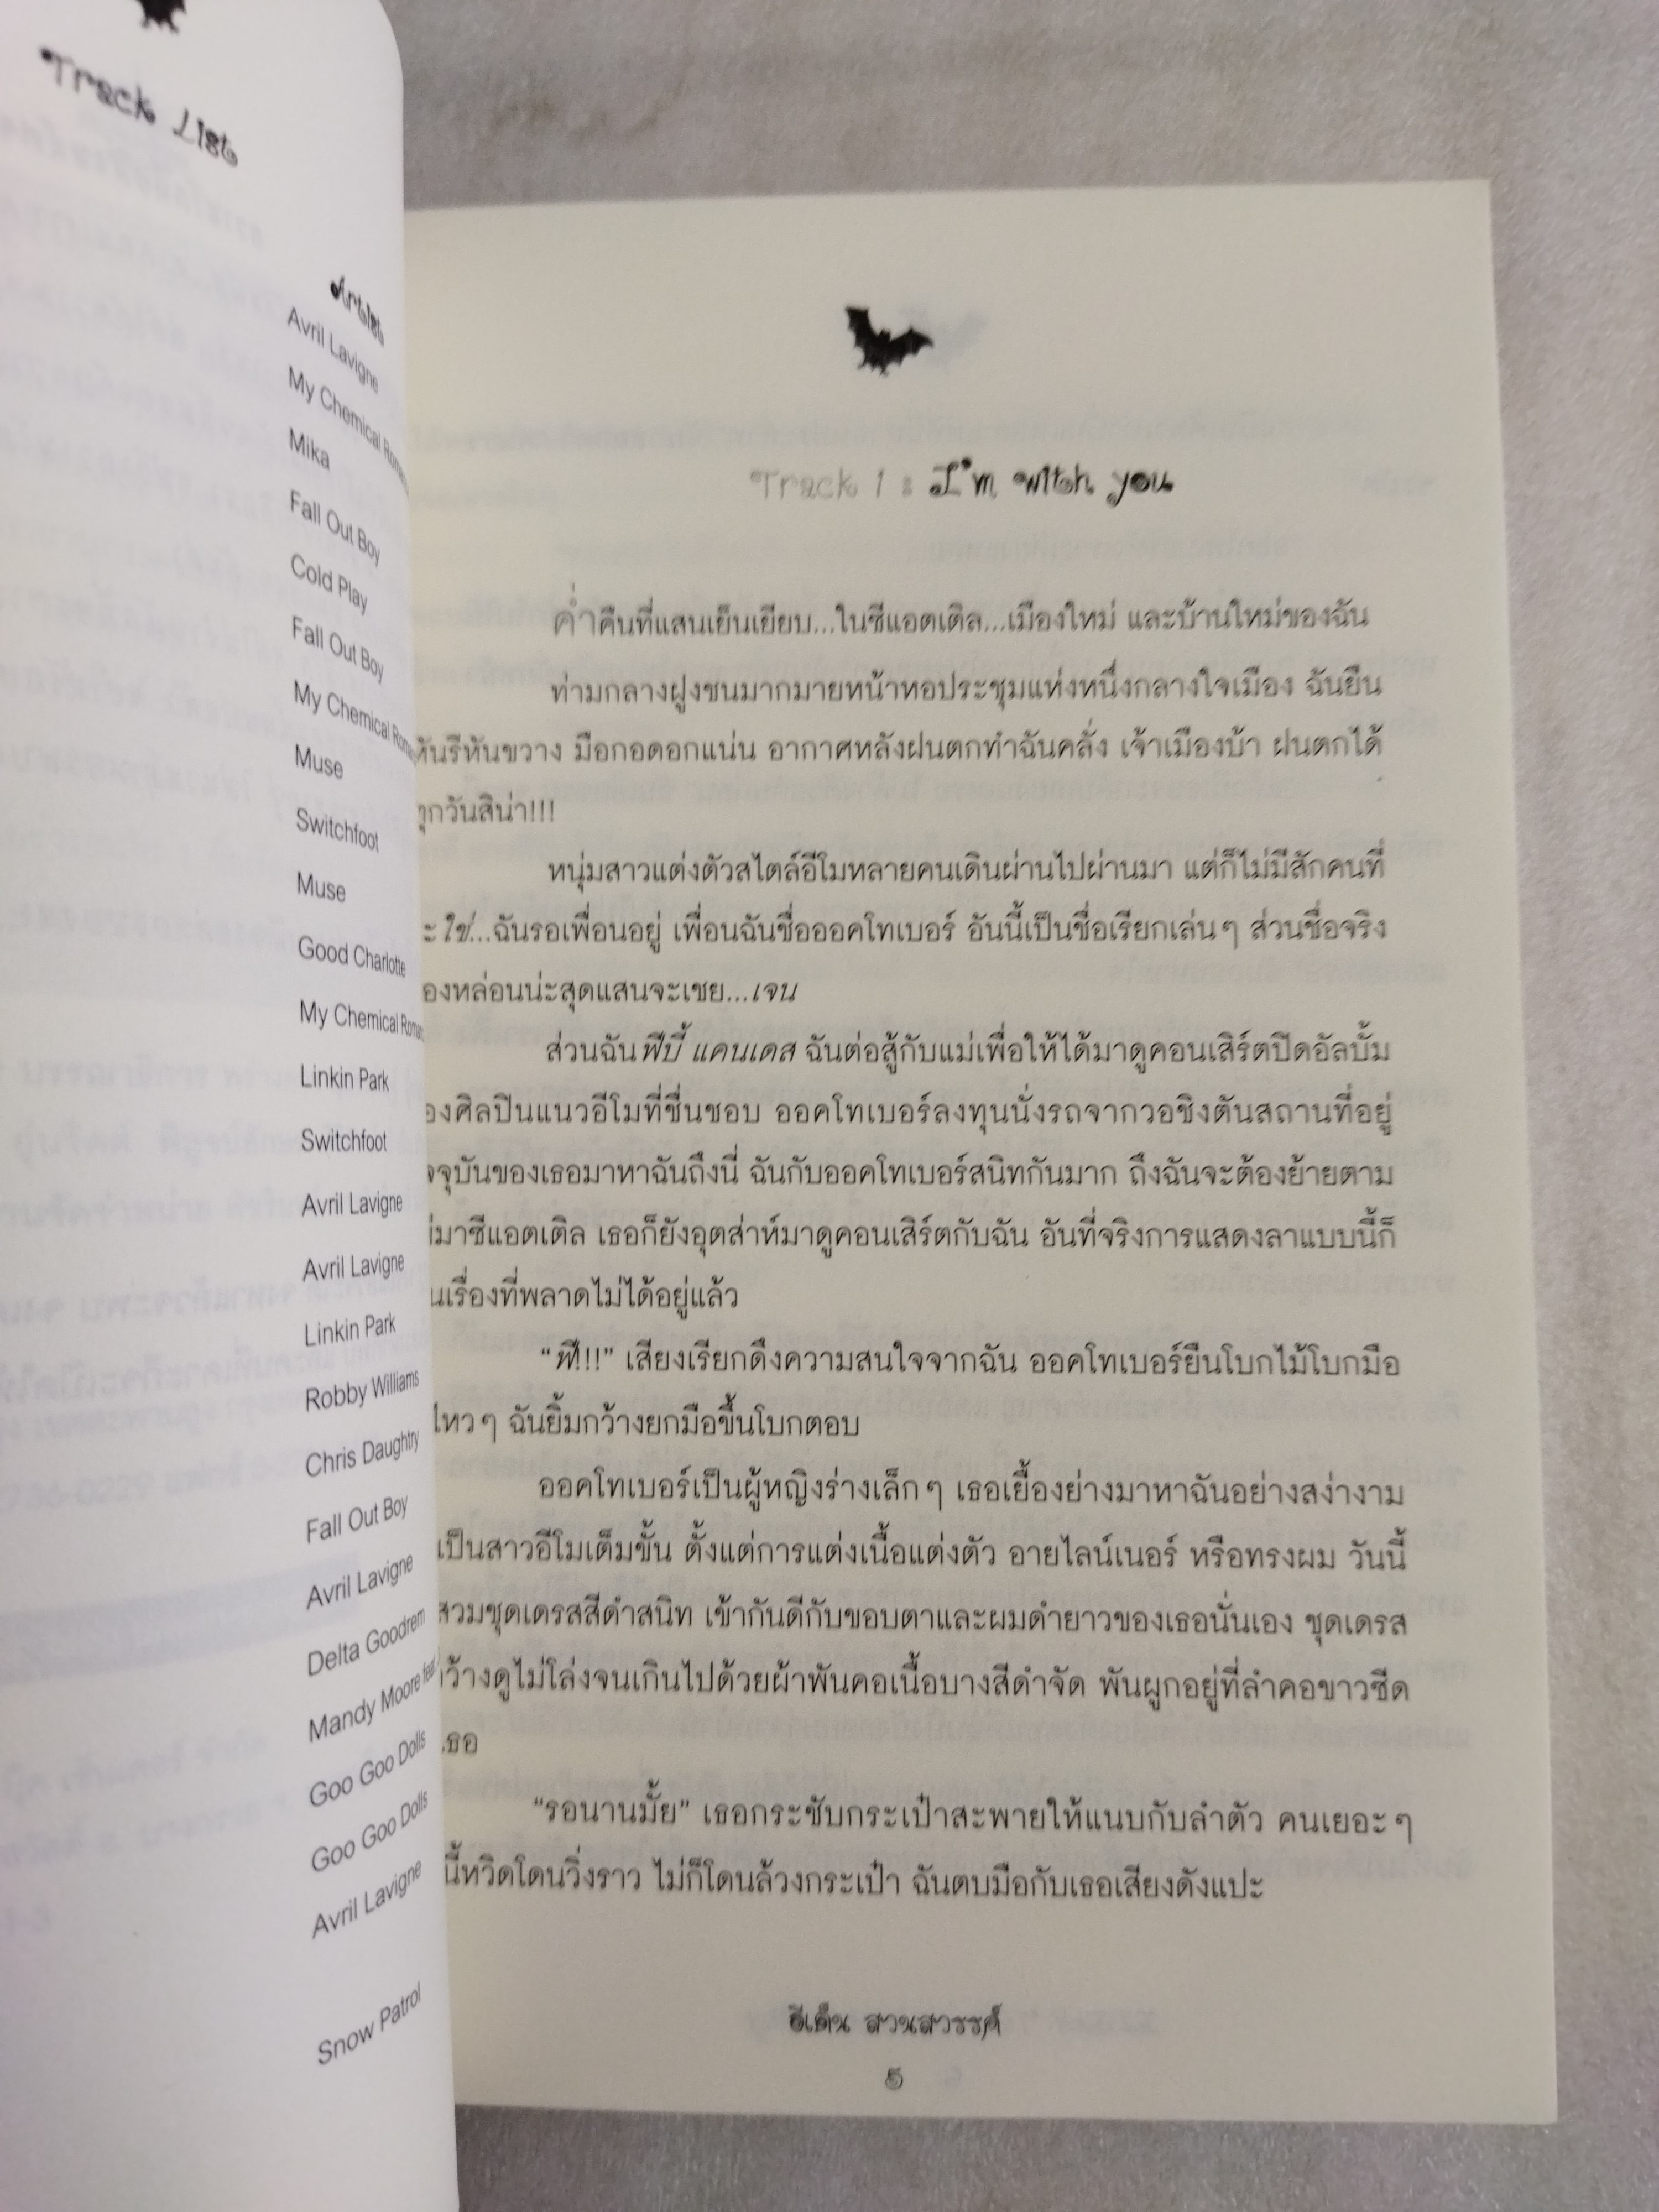 Track List
Artist
Avril Lavigne
My Chemical
Mika
Fall Out Boy
Cold Play
Fall Out Boy
My Chemical
Muse
Switchfoot
Muse
Good Charlotte
My Chemical
Linkin Park
Switchfoot
Avril Lavigne
Avril Lavigne
Linkin Park
Robby Williams
Chris Daughtry
Fall Out Boy
Avril Lavigne
Delta Goodrem
Mandy Moore
Goo Goo Dolls
Goo Goo Dolls
Avril Lavigne
Snow Patrol
Track 1 : I'm with you
ค่ำคืนที่แสนเย็นเยียบ...ในซีแอตเติล...เมืองใหม่ และบ้านใหม่ของฉัน
ท่ามกลางฝูงชนมากมายหน้าหอประชุมแห่งหนึ่งกลางใจเมือง ฉันยืน
หันรีหันขวาง มือกอดอกแน่น อากาศหลังฝนตกทำฉันคลั่ง เจ้าเมืองบ้า ฝนตกได้
ทุกวันสิน่า!!!
หนุ่มสาวแต่งตัวสไตล์อีโมหลายคนเดินผ่านไปผ่านมา แต่ก็ไม่มีสักคนที่
จะใช่...ฉันรอเพื่อนอยู่ เพื่อนฉันชื่อออคโทเบอร์ อันนี้เป็นชื่อเรียกเล่นๆ ส่วนชื่อจริง
องหล่อนน่ะสุดแสนจะเชย...เจน
ส่วนฉัน ฟีบี้ แคนเดส ฉันต่อสู้กับแม่เพื่อให้ได้มาดูคอนเสิร์ตปิดอัลบั้ม
องศิลปินแนวอีโมที่ชื่นชอบ ออคโทเบอร์ลงทุนนั่งรถจากวอชิงตันสถานที่อยู่
จจุบันของเธอมาหาฉันถึงนี่ ฉันกับออคโทเบอร์สนิทกันมาก ถึงฉันจะต้องย้ายตาม
ม่มาซีแอตเติล เธอก็ยังอุตส่าห์มาดูคอนเสิร์ตกับฉัน อันที่จริงการแสดงลาแบบนี้ก็
นเรื่องที่พลาดไม่ได้อยู่แล้ว
“ฟี!!!” เสียงเรียกดึงความสนใจจากฉัน ออคโทเบอร์ยืนโบกไม้โบกมือ
ไหวๆ ฉันยิ้มกว้างยกมือขึ้นโบกตอบ
ออคโทเบอร์เป็นผู้หญิงร่างเล็กๆ เธอเยื้องย่างมาหาฉันอย่างสง่างาม
เป็นสาวอีโมเต็มขั้น ตั้งแต่การแต่งเนื้อแต่งตัว อายไลน์เนอร์ หรือทรงผม วันนี้
สวมชุดเดรสสีดำสนิท เข้ากันดีกับขอบตาและผมดำยาวของเธอนั่นเอง ชุดเดรส
ว้างดูไม่โล่งจนเกินไปด้วยผ้าพันคอเนื้อบางสีดำจัด พันผูกอยู่ที่ลำคอขาวซีด
เธอ
“รอนานมั้ย” เธอกระชับกระเป๋าสะพายให้แนบกับลำตัว คนเยอะๆ
นี้หวิดโดนวิ่งราว ไม่ก็โดนล้วงกระเป๋า ฉันตบมือกับเธอเสียงดังแปะ
อีเด็น สวนสวรรค์
๕